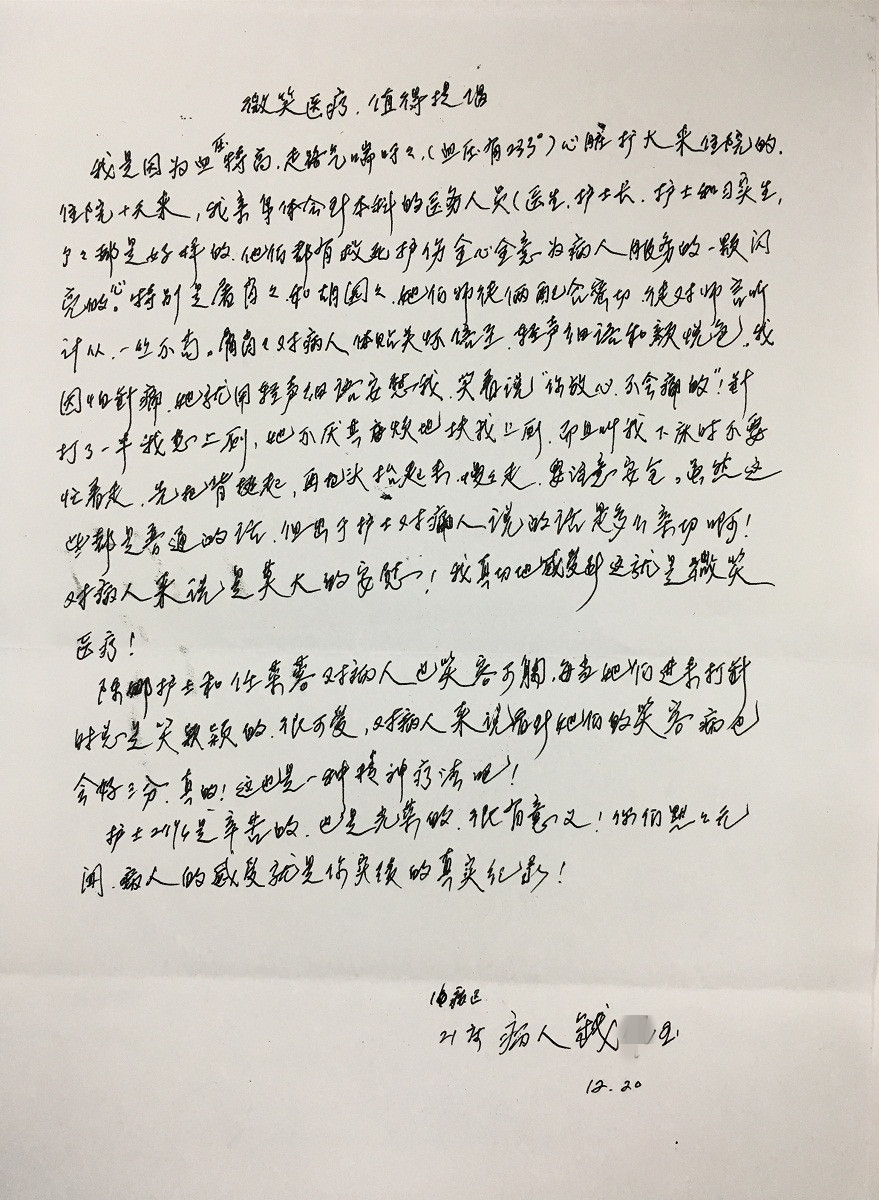 微笑医疗.值得提倡
我是因为血压特高.走路气喘吁々.(血压有235°)心脏扩大来住院的.
住院十天来,我亲身体会到本科的医务人员(医生.护士长.护士和习实生,
个々都是好样的.他们都有救死护伤全心全意为病人服务的一颗闪
亮的心。特别是 和胡圆々.她们师徒俩配合密切.徒对师言听
计从.一丝不苟。 对病人体贴关怀倍至.轻声细语和颜悦色.我
因怕针痛.她就用轻声细语安慰我.笑着说“你放心.不会痛的”!针
打了一半我想上厕,她不厌其麻烦地扶我上厕.而且叫我下床时不要
忙着走.先把背挺起,再把头抬起来.慢々走.要注意安全。虽然这
些都是普通的话.但出于护士对病人说的话是多么亲切啊!
对病人来说是莫大的安慰!我真切地感受到这就是微笑
医疗!
陈娜护士和任 对病人也笑容可掬.每当她们进来打针
时总是笑颖颖的.很可爱,对病人来说看到她们的笑容病也
会好三分.真的!这也是一种精神疗法吧!
护士工作是辛苦的.也是光荣的.很有意义!你们默々无
闻.病人的感受就是你实绩的真实纪录!
病区
21床 病人 钱
12.20